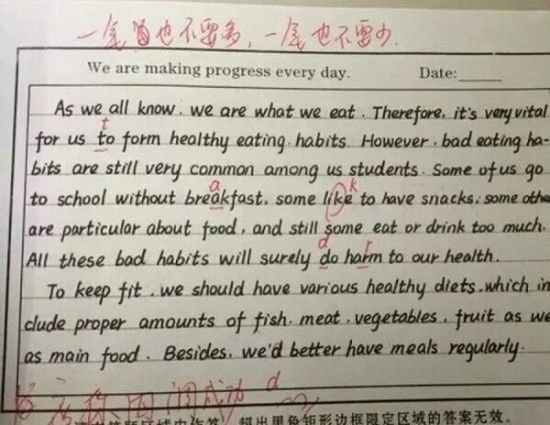 一笔也不要多,一笔也不要少.
We are making progress every day. Date:
As we all know, we are what we eat. Therefore, it's very vital
t
for us to form healthy eating habits. However, bad eating ha-
bits are still very common among us students. Some of us go
a k
to school without breakfast, some like to have snacks, some othe
are particular about food, and still some eat or drink too much.
d r
All these bad habits will surely do harm to our health.
To keep fit, we should have various healthy diets, which in
clude proper amounts of fish, meat, vegetables, fruit as we
as main food. Besides, we'd better have meals regularly.
成功 d
超出黑色矩形边框限定区域的答案无效。